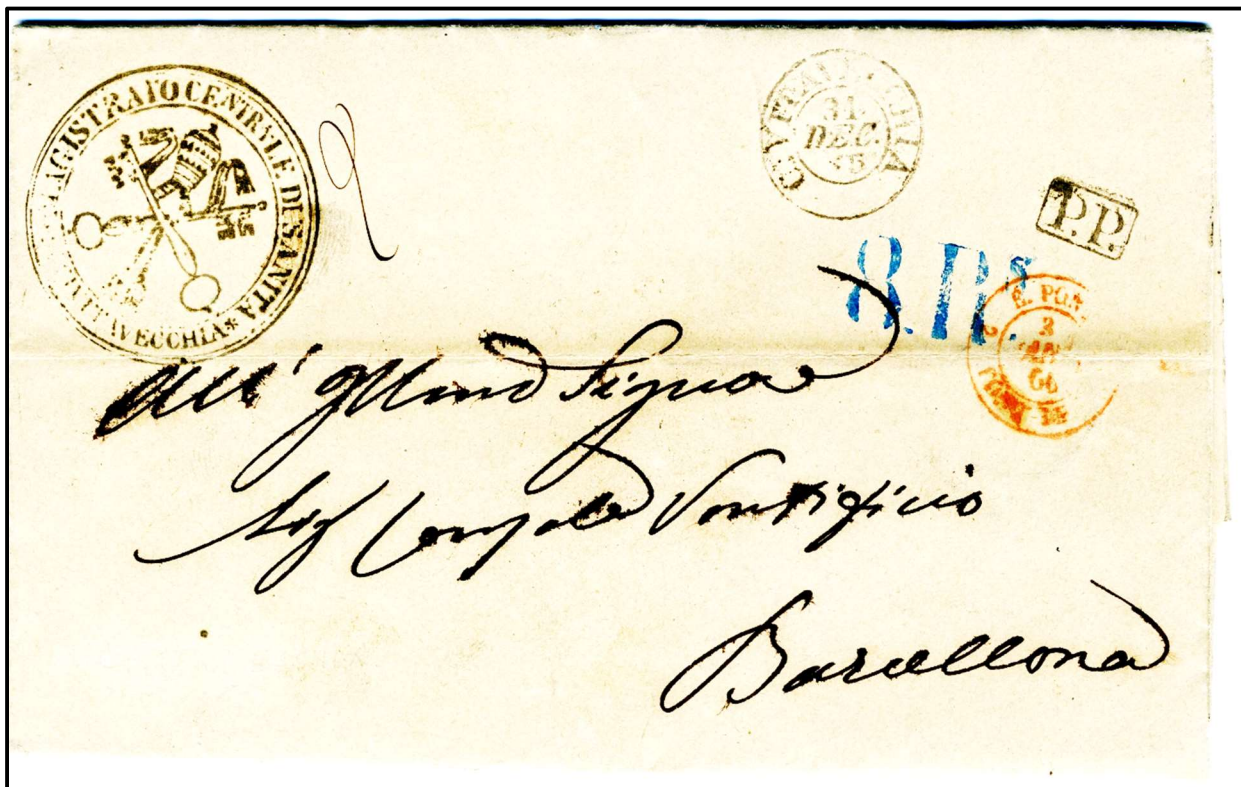 MAGISTRATO CENTRALE DI SANITA
CIVITAVECCHIA
CIVITAVECCHIA
31
DEC.
65
P.P.
8.Rs.
E. PON
3
66
2
All' Illmo Signore
Sig Console Pontificio
Barcellona